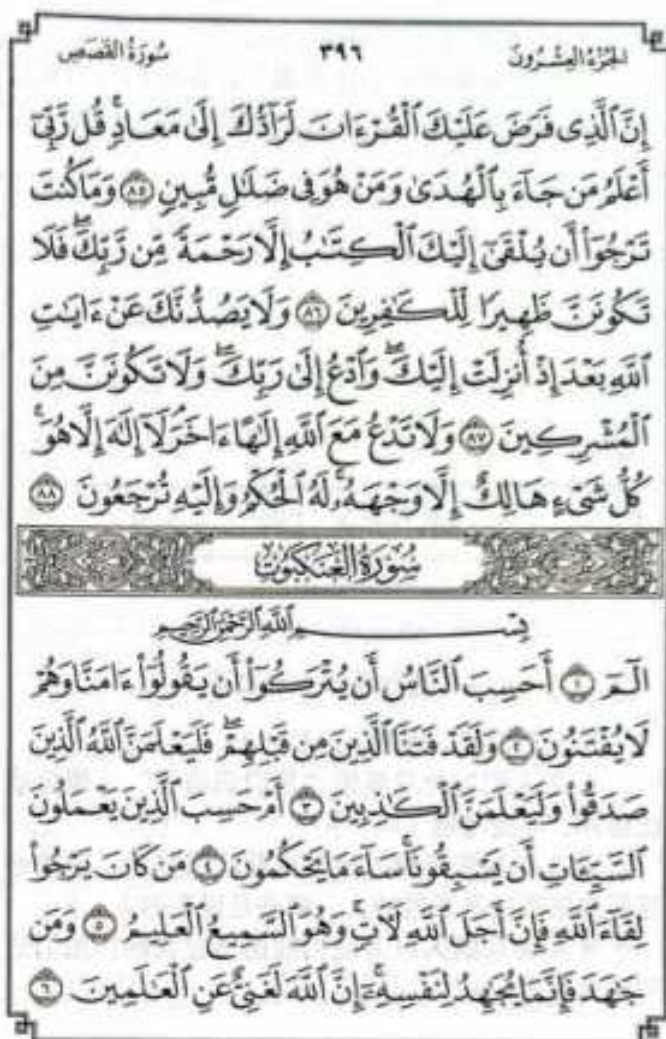 الجزء العشرون ٣٩٦ سورة القصص
إِنَّ ٱلَّذِى فَرَضَ عَلَيْكَ ٱلْقُرْءَانَ لَرَآدُّكَ إِلَىٰ مَعَادٍ ۚ قُل رَّبِّىٓ
أَعْلَمُ مَن جَآءَ بِٱلْهُدَىٰ وَمَنْ هُوَ فِى ضَلَٰلٍ مُّبِينٍ ٨٥ وَمَا كُنتَ
تَرْجُوٓا۟ أَن يُلْقَىٰٓ إِلَيْكَ ٱلْكِتَٰبُ إِلَّا رَحْمَةً مِّن رَّبِّكَ ۖ فَلَا
تَكُونَنَّ ظَهِيرًا لِّلْكَٰفِرِينَ ٨٦ وَلَا يَصُدُّنَّكَ عَنْ ءَايَٰتِ
ٱللَّهِ بَعْدَ إِذْ أُنزِلَتْ إِلَيْكَ ۖ وَٱدْعُ إِلَىٰ رَبِّكَ ۖ وَلَا تَكُونَنَّ مِنَ
ٱلْمُشْرِكِينَ ٨٧ وَلَا تَدْعُ مَعَ ٱللَّهِ إِلَٰهًا ءَاخَرَ ۘ لَآ إِلَٰهَ إِلَّا هُوَ ۚ
كُلُّ شَىْءٍ هَالِكٌ إِلَّا وَجْهَهُۥ ۚ لَهُ ٱلْحُكْمُ وَإِلَيْهِ تُرْجَعُونَ ٨٨
سُورَةُ العَنكَبُوتِ
بِسْمِ ٱللَّهِ ٱلرَّحْمَٰنِ ٱلرَّحِيمِ
الٓمٓ ١ أَحَسِبَ ٱلنَّاسُ أَن يُتْرَكُوٓا۟ أَن يَقُولُوٓا۟ ءَامَنَّا وَهُمْ
لَا يُفْتَنُونَ ٢ وَلَقَدْ فَتَنَّا ٱلَّذِينَ مِن قَبْلِهِمْ ۖ فَلَيَعْلَمَنَّ ٱللَّهُ ٱلَّذِينَ
صَدَقُوا۟ وَلَيَعْلَمَنَّ ٱلْكَٰذِبِينَ ٣ أَمْ حَسِبَ ٱلَّذِينَ يَعْمَلُونَ
ٱلسَّيِّـَٔاتِ أَن يَسْبِقُونَا ۚ سَآءَ مَا يَحْكُمُونَ ٤ مَن كَانَ يَرْجُوا۟
لِقَآءَ ٱللَّهِ فَإِنَّ أَجَلَ ٱللَّهِ لَءَاتٍ ۚ وَهُوَ ٱلسَّمِيعُ ٱلْعَلِيمُ ٥ وَمَن
جَٰهَدَ فَإِنَّمَا يُجَٰهِدُ لِنَفْسِهِۦٓ ۚ إِنَّ ٱللَّهَ لَغَنِىٌّ عَنِ ٱلْعَٰلَمِينَ ٦